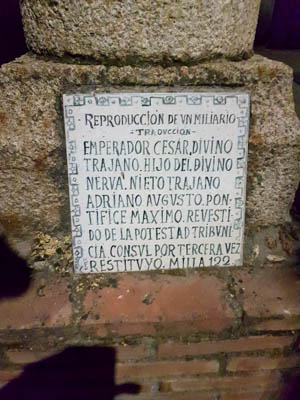 REPRODUCCIÓN DE VN MILIARIO
-TRADUCCION-
EMPERADOR CESAR, DIVINO
TRAJANO. HIJO DEL DIVINO
NERVA. NIETO TRAJANO
ADRIANO AVGVSTO. PON-
TIFICE MAXIMO. REVESTI-
DO DE LA POTESTAD TRIBVNI
CIA CONSVL POR TERCERA VEZ
RESTITVYO. MILLA 122